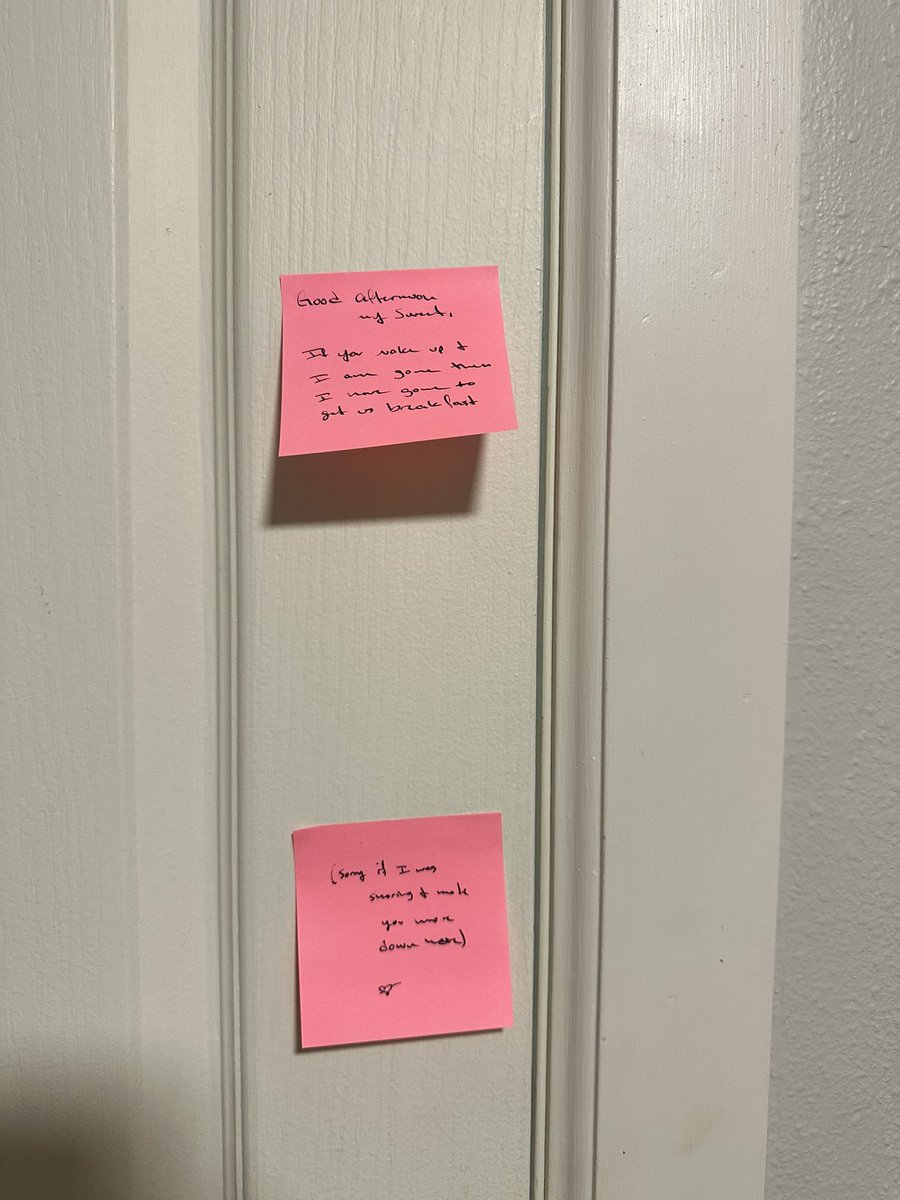 Good afternoon
my Sweet,
If you wake up &
I am gone then
I have gone to
get us breakfast
(Sorry if I was
snoring & made
you move
down here)